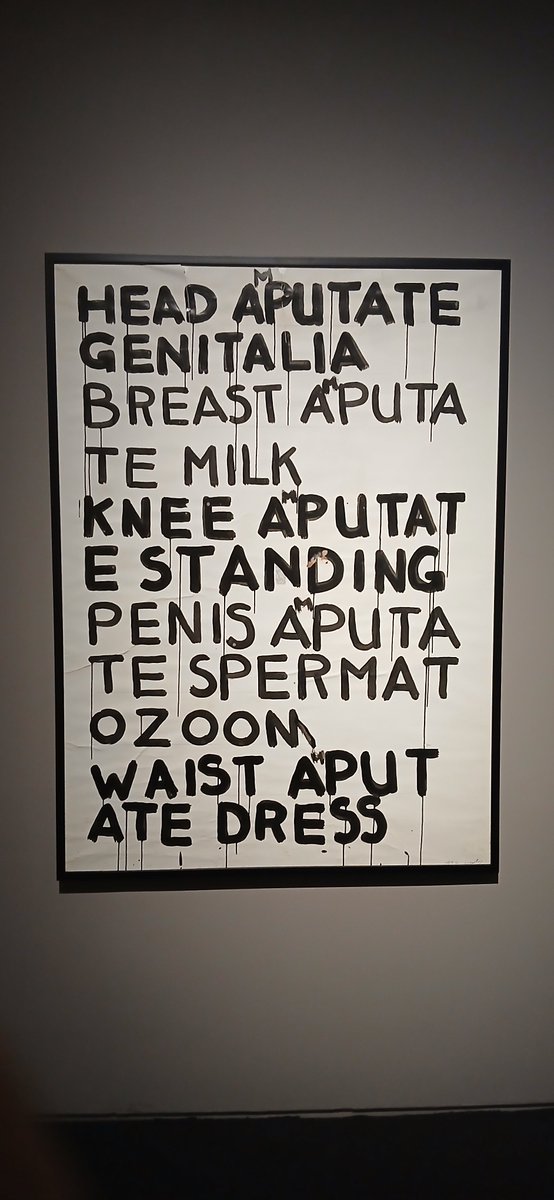 HEAD AMPUTATE
GENITALIA
BREAST AMPUTA
TE MILK
KNEE AMPUTAT
E STANDING
PENIS AMPUTA
TE SPERMAT
OZOON
WAIST AMPUT
ATE DRESS